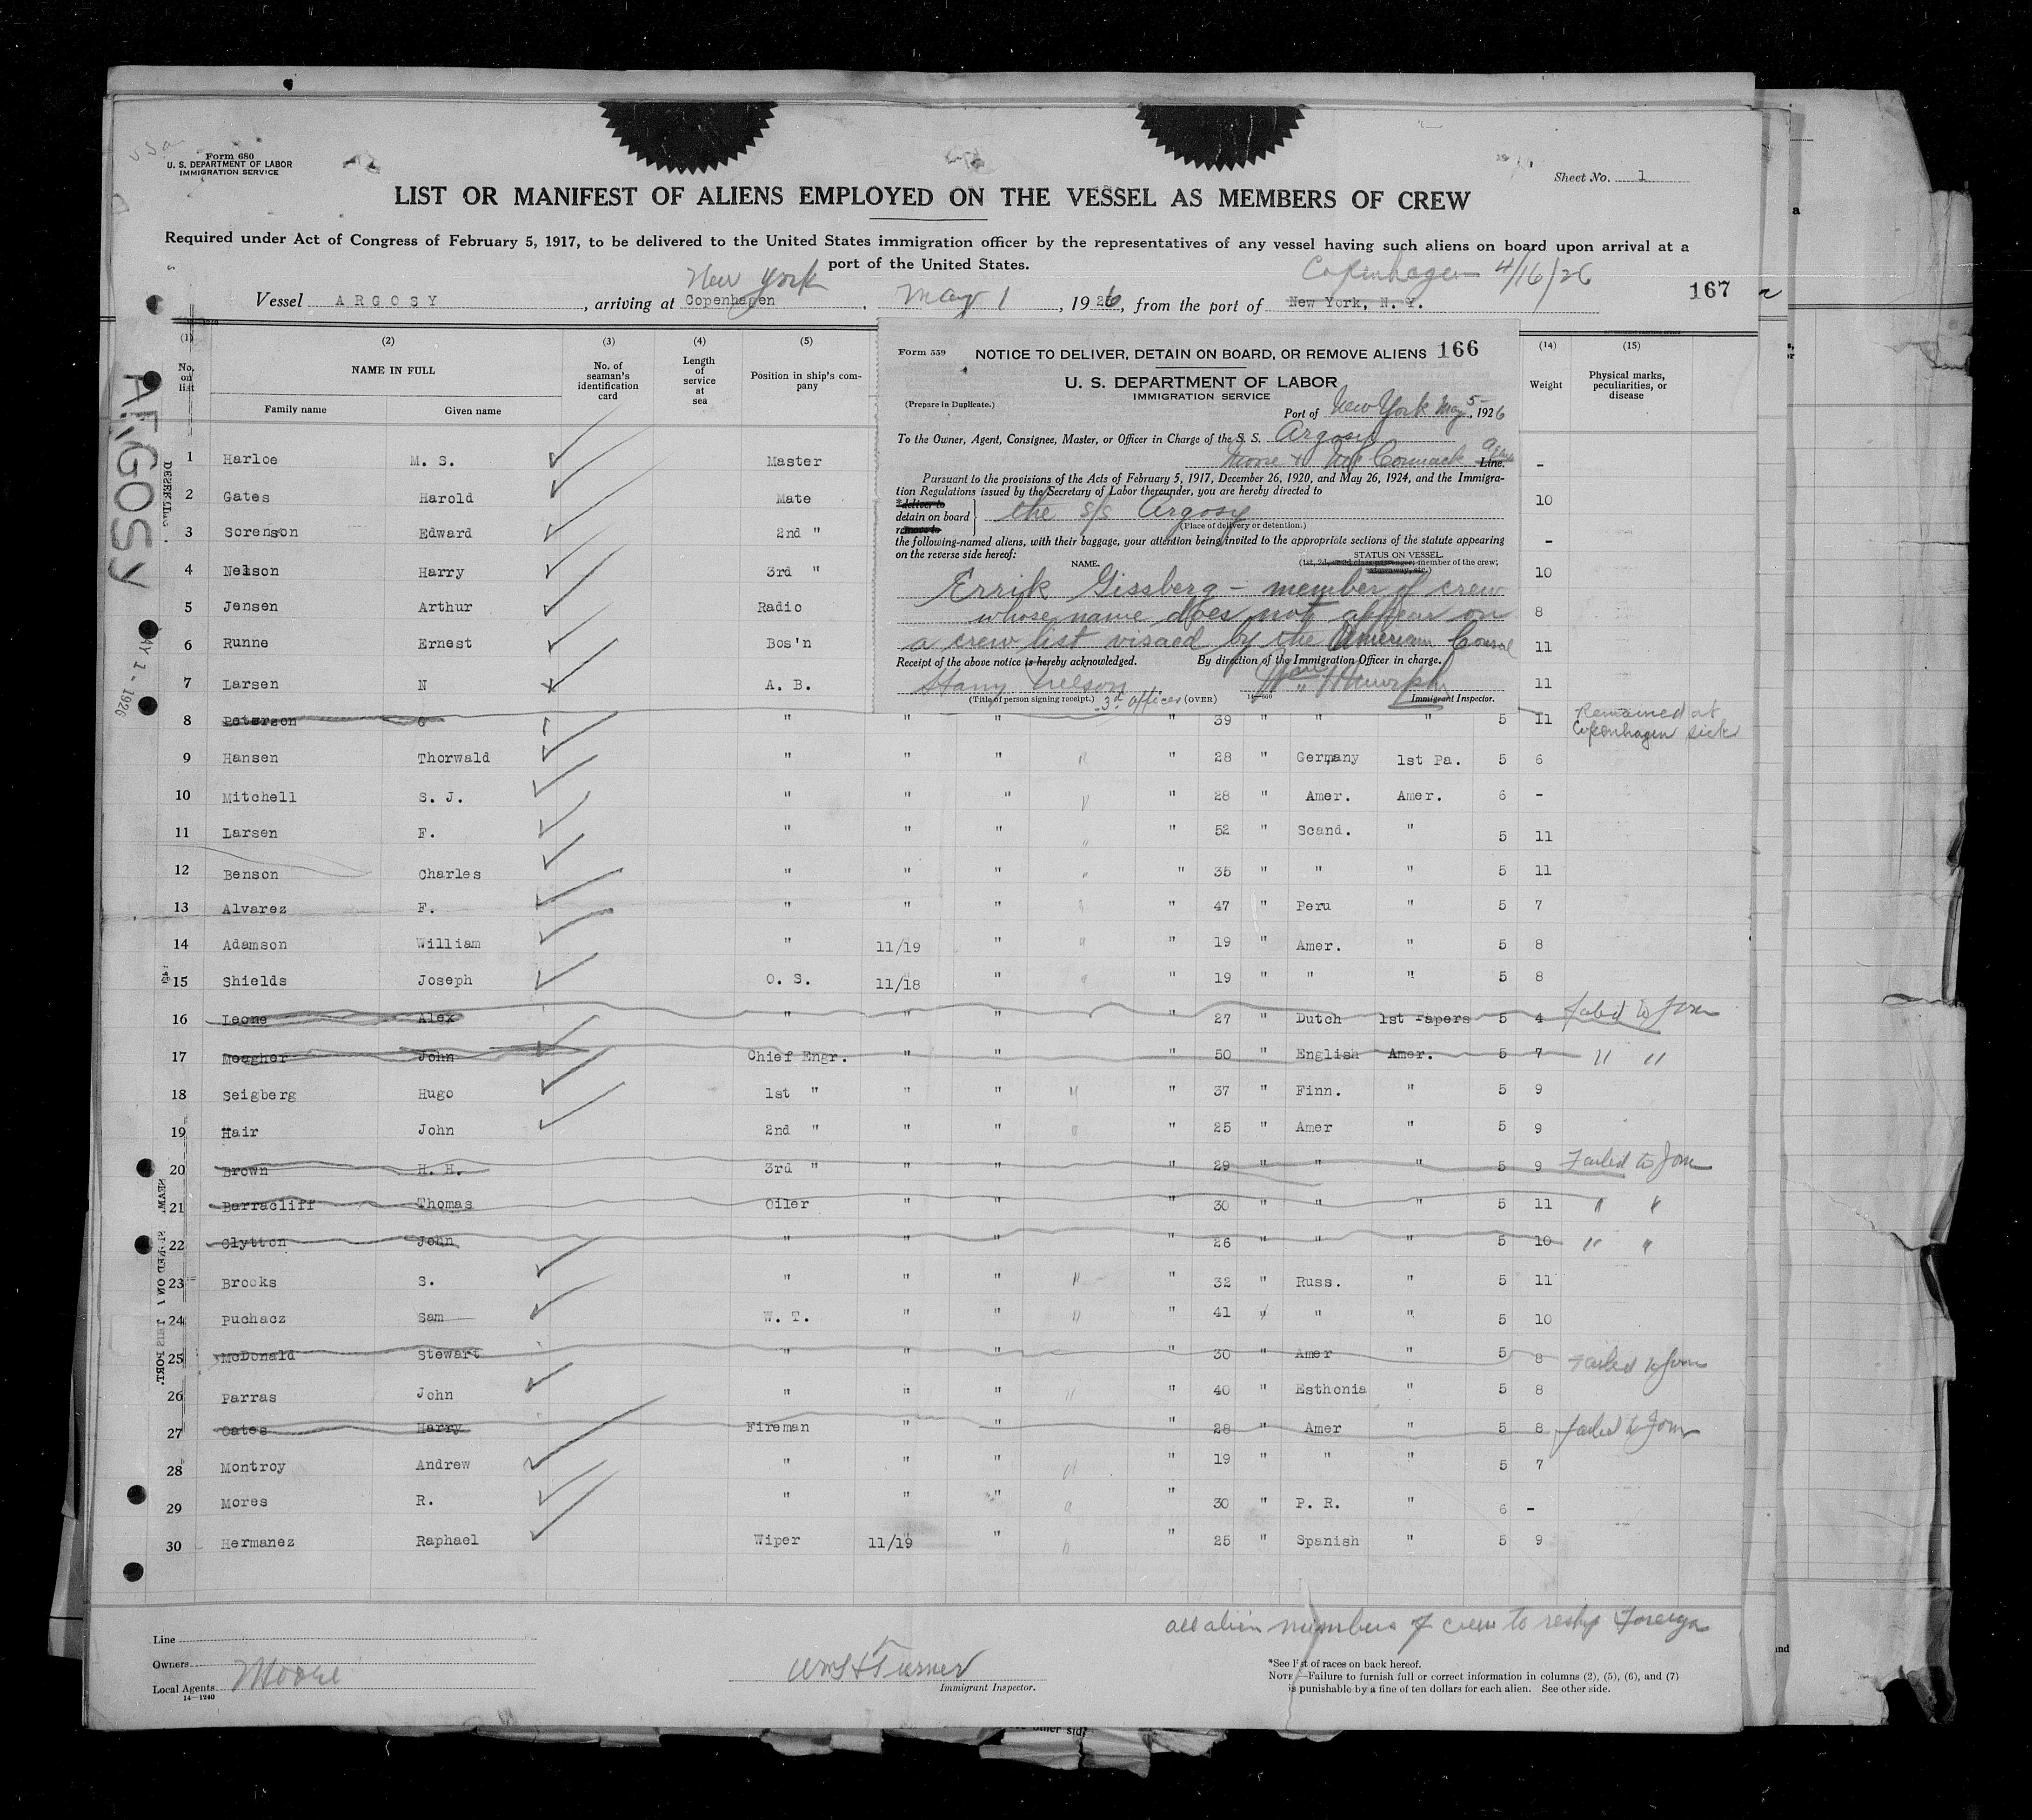 Form 680
U. S. DEPARTMENT OF LABOR
IMMIGRATION SERVICE
Sheet No. 1
LIST OR MANIFEST OF ALIENS EMPLOYED ON THE VESSEL AS MEMBERS OF CREW
Required under Act of Congress of February 5, 1917, to be delivered to the United States immigration officer by the representatives of any vessel having such aliens on board upon arrival at a
port of the United States.
New York Copenhagen 4/16/26
Vessel ARGOSY, arriving at Copenhagen, May 1, 1926, from the port of New York, N. Y.
167
ARGOSY
MAY 1 - 1926
(1) (2) (3) (4) (5) (14) (15)
No. on list NAME IN FULL No. of seaman's identification card Length of service at sea Position in ship's company Weight Physical marks, peculiarities, or disease
Family name Given name
Form 559 NOTICE TO DELIVER, DETAIN ON BOARD, OR REMOVE ALIENS 166
U. S. DEPARTMENT OF LABOR
IMMIGRATION SERVICE
(Prepare in Duplicate.)
Port of New York May 5, 1926
To the Owner, Agent, Consignee, Master, or Officer in Charge of the S. S. Argosy
Moore & McCormack Line.
Pursuant to the provisions of the Acts of February 5, 1917, December 26, 1920, and May 26, 1924, and the Immigra-
tion Regulations issued by the Secretary of Labor thereunder, you are hereby directed to
*deliver to
detain on board } the s/s Argosy
remove to
(Place of delivery or detention.)
the following-named aliens, with their baggage, your attention being invited to the appropriate sections of the statute appearing
on the reverse side hereof:
NAME. STATUS ON VESSEL.
(1st, 2d, or 3d class passenger; member of the crew; stowaway, etc.)
Errik Gissberg - member of crew
whose name does not appear on
a crew list visaed by the American Consul
Receipt of the above notice is hereby acknowledged. By direction of the Immigration Officer in charge.
Harry Nelson
(Title of person signing receipt.) 3d officer (OVER) Immigrant Inspector.
1 Harloe M. S. Master -
2 Gates Harold Mate 10
3 Sorenson Edward 2nd " -
4 Nelson Harry 3rd " 10
5 Jensen Arthur Radio 8
6 Runne Ernest Bos'n 11
7 Larsen N A. B. 11
8 Peterson G " " " " 39 " " " 5 11 Remained at Copenhagen sick
9 Hansen Thorwald " " " " " 28 " Germany 1st Pa. 5 6
10 Mitchell S. J. " " " " " 28 " Amer. Amer. 6 -
11 Larsen F. " " " " " 52 " Scand. " 5 11
12 Benson Charles " " " " " 35 " " " 5 11
13 Alvarez F. " " " " " 47 " Peru " 5 7
14 Adamson William " 11/19 " " " 19 " Amer. " 5 8
15 Shields Joseph O. S. 11/18 " " " 19 " " " 5 8
16 Leone Alex " " " " 27 " Dutch 1st Papers 5 4 failed to Join
17 Meagher John Chief Engr. " " " 50 " English Amer. 5 7 " "
18 Seigberg Hugo 1st " " " " " 37 " Finn. " 5 9
19 Hair John 2nd " " " " " 25 " Amer " 5 9
20 Brown H. H. 3rd " " " " 29 " " " 5 9 Failed to Join
21 Barracliff Thomas Oiler " " " 30 " " " 5 11 " "
22 Clytton John " " " " 26 " " " 5 10 " "
23 Brooks S. " " " " " 32 " Russ. " 5 11
24 Puchacz Sam W. T. " " " " 41 " " " 5 10
25 McDonald Stewart " " " " 30 " Amer " 5 8 Failed to Join
26 Parras John " " " " " 40 " Esthonia " 5 8
27 Oates Harry Fireman " " " 28 " Amer " 5 8 failed to Join
28 Montroy Andrew " " " " " 19 " " " 5 7
29 Mores R. " " " " " 30 " P. R. " 6 -
30 Hermanez Raphael Wiper 11/19 " " " 25 " Spanish " 5 9
all alien members of crew to reship Foreign
Line
Owners
Local Agents Moore
14-1240
Immigrant Inspector.
*See list of races on back hereof.
NOTE.—Failure to furnish full or correct information in columns (2), (5), (6), and (7)
is punishable by a fine of ten dollars for each alien. See other side.